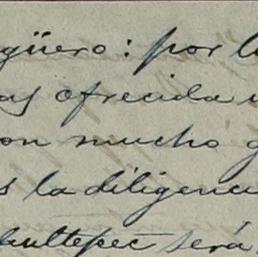 güero: por l
as ofrecida
on mucho g
s la diligenci
hultepec será